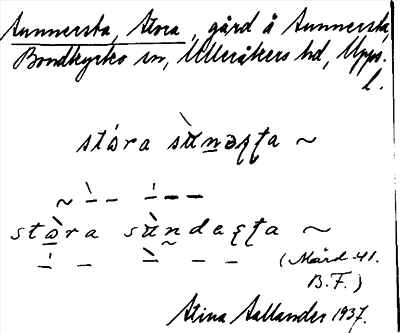 Sunnersta, Stora, gård å Sunnersta,
Bondkyrko sn, Ulleråkers hd, Upps.
l.
stóra sùnəʂʈa ~
stòra sùndaʂʈa ~
(Mård 41.
B.F.)
Stina Aallander 1937.